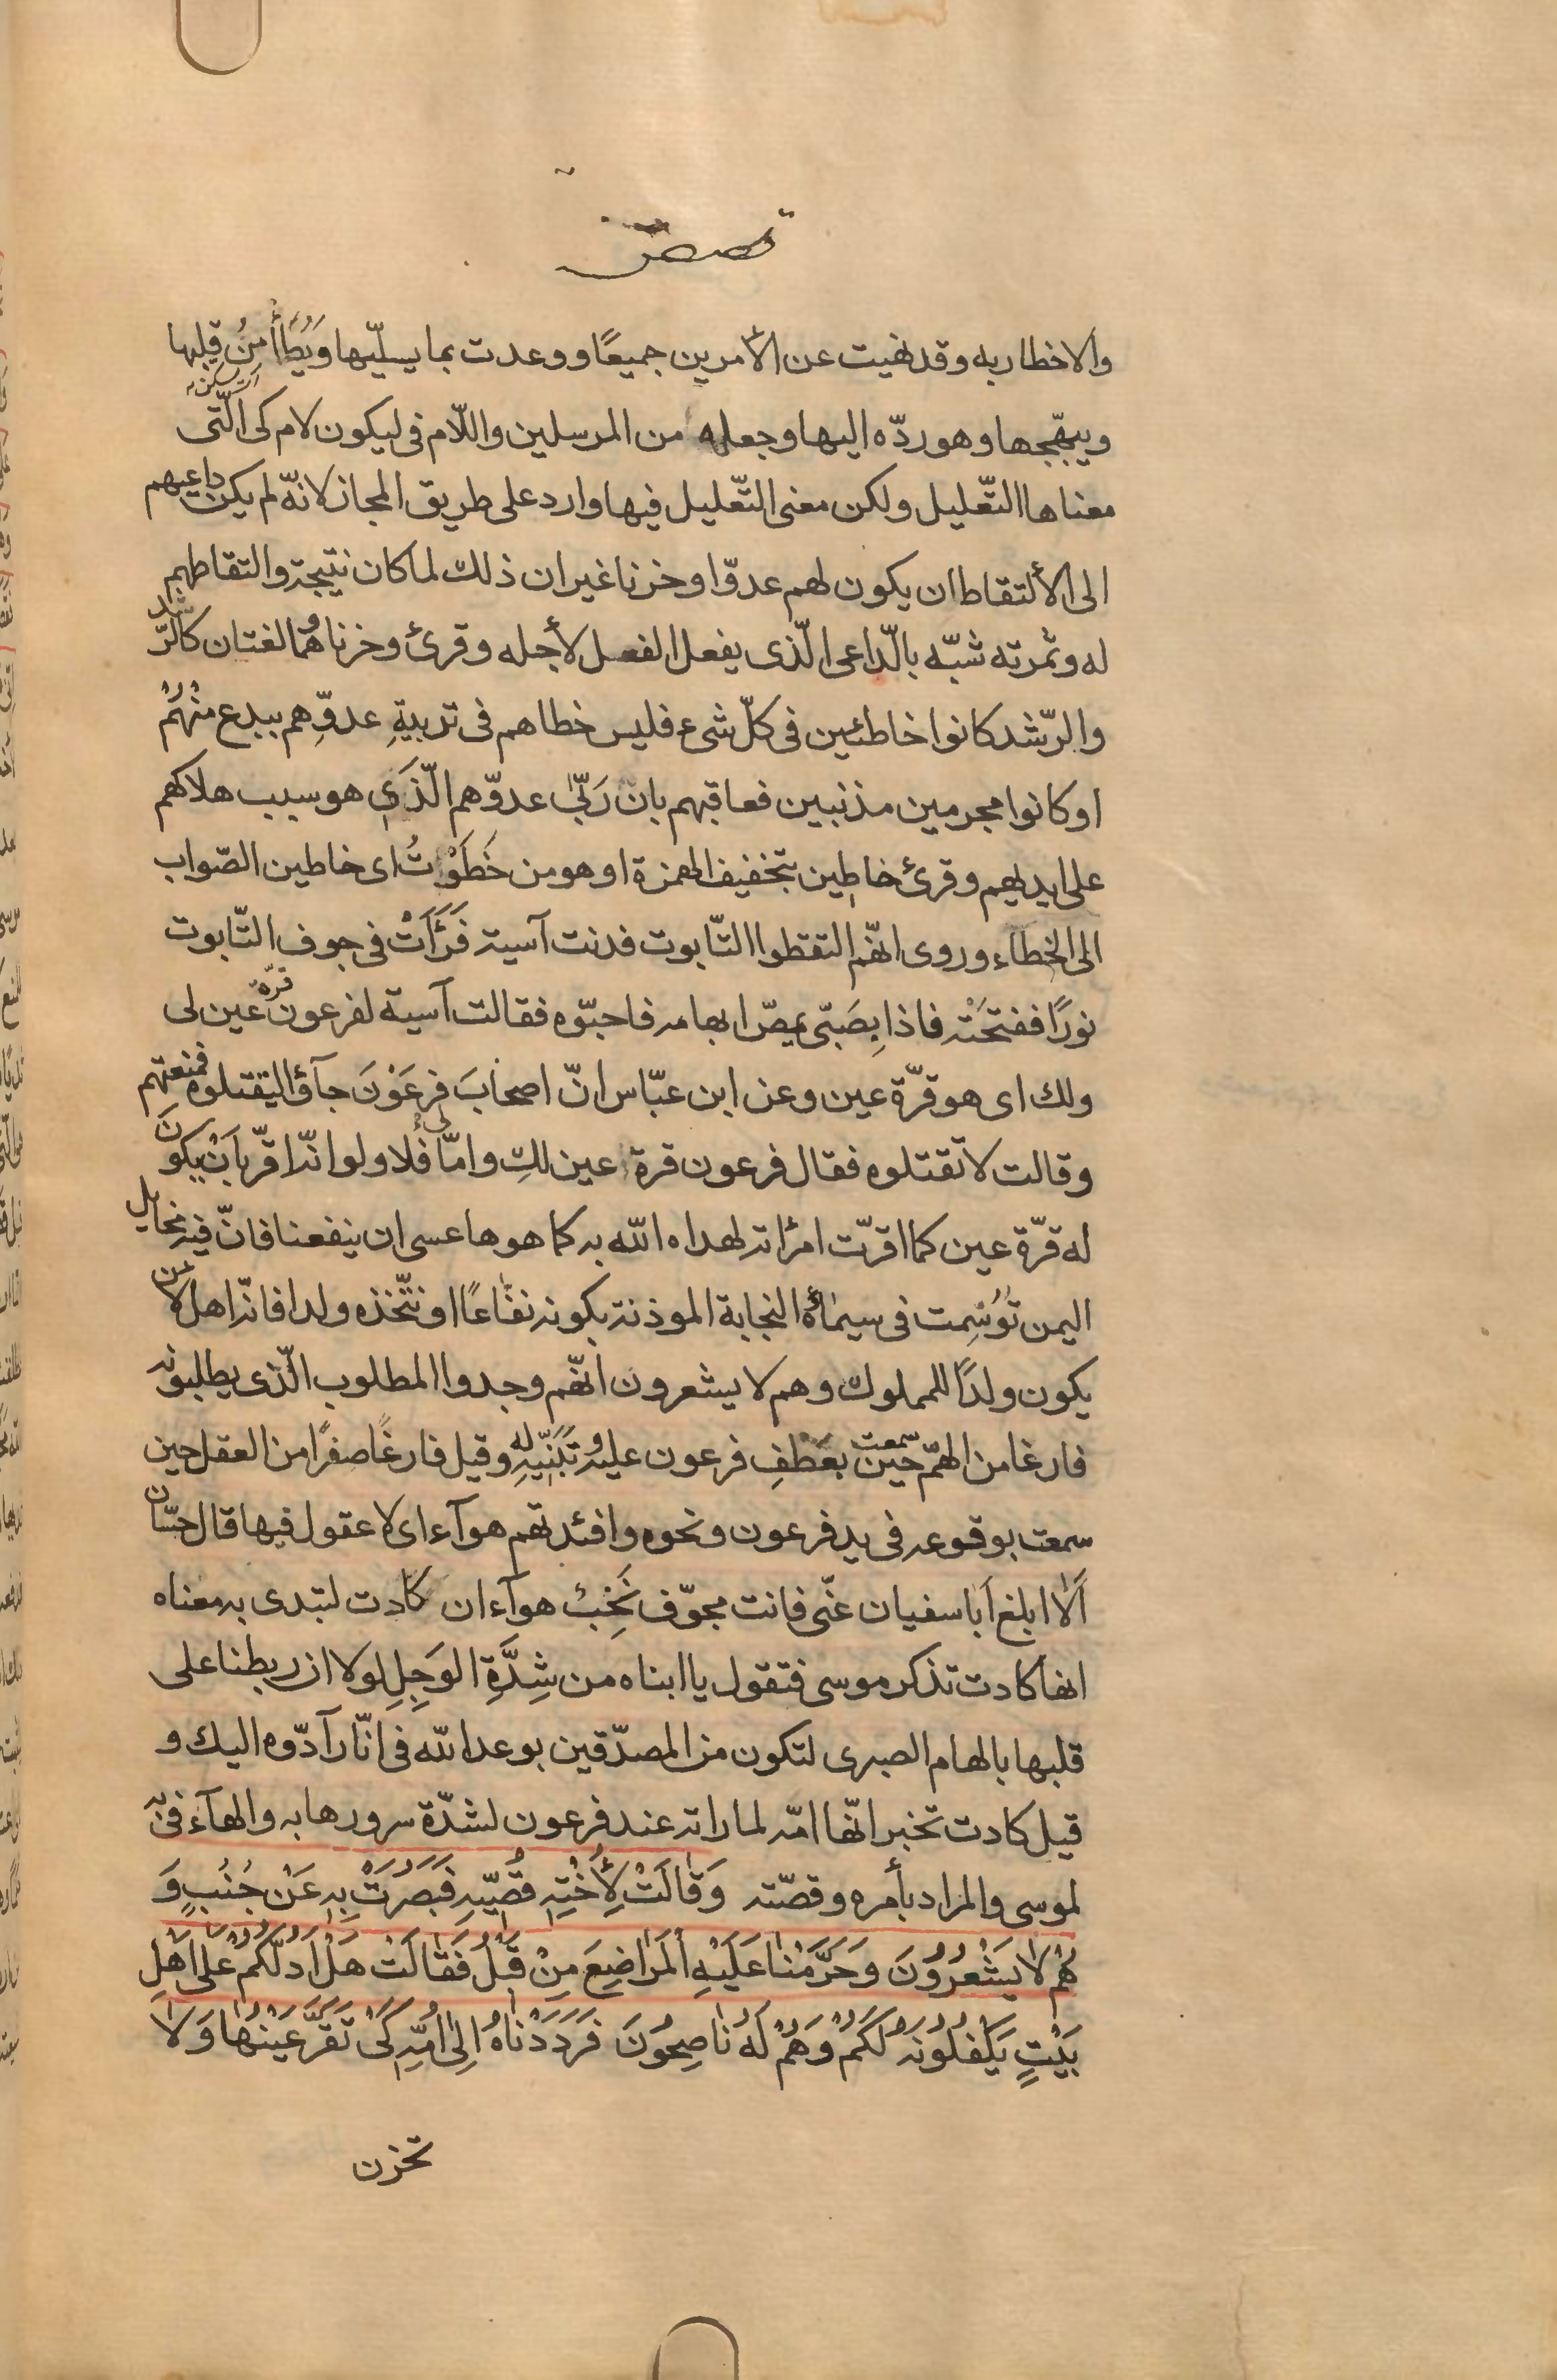 قصص
والاخطار به وقد نهيت عن الأمرين جميعًا ووعدت بما يسلّيها ويُطَأمِنُ قلبها
ای تسكنه
ويبهّجها وهو ردّه اليها وجعله من المرسلين واللّام فی ليكون لام كی الّتی
معناها التّعليل ولكن معنی التّعليل فيها وارد علی طريق المجاز لانّه لم يكن داعيهم
الی الألتقاط ان يكون لهم عدوّا وحزنا غير ان ذلك لما كان نتيجة والتقاطهم
له وثمرته شبّه بالّداعی الّذی يفعل الفعل لأجله وقرئ وحزنا وهُما لغتان كالرّشد
والرّشد كانوا خاطئين فی كلّ شیء فليس خطاهم فی تربيةِ عدوِّهم ببدع منهُم
او كانوا مجرمين مذنبين فعاقبهم بان رَبّیٰ عدوّهم الّذَی هو سبب هلاكهم
علی ايديهم وقرئ خاطين بتخفيف الهمزة او هو من خَطَوْتُ ای خاطين الصّواب
الی الخطاء وروی انّهم التقطوا التّابوت فدنت آسية فَرَأَتْ فی جوف التّابوت
نورًا ففتحَتْه فاذا بِصَبّی يمصّ ابهامه فاحبّوه فقالت آسية لفرعون قرّة عين لی
ولك ای هو قرّة عين وعن ابن عبّاس انّ اصحٰابَ فِرعَوْنَ جآؤا ليقتلوه فمنعتهم
وقالت لا تقتلوه فقال فرعون قرة عين لكِ وامّا لی فلا ولو انّه اقرّ بِاَنْ يكونَ
له قرّة عين كما اقرّت امرأته لهداه الله به كما هوها عسی ان ينفعنا فانّ فيه مخايل
اليمن تُوُسِّمت فی سيمٰائه النجابة الموذنة بكونه نفّاعًا او نتّخذه ولدا فانّه اهل لان
يكون ولدًا للمملوك وهم لا يشعرون انّهم وجدوا المطلوب الّذی يطلبونه
فارغا من الهمّ حين سمعت بعَطْفِ فرعون عليه وتَبَنّيهِ له وقيل فارغًا صفرًا من العقل حين
سمعت بوقوعه فی يد فرعون ونحوه وافئدتهم هوآء ای لا عقول فيها قال حسّان
اَلٰا ابلغ اَبا سفيان عنّی فانت مجوّف نَخِبٌ هوآء ان كادت لتبدی به معناه
انها كادت تذكر موسی فتقول يا ابناه من شِدَّةِ الوَجِلِ لولا ان ربطنا علی
قلبها بالهام الصبری لتكون من المصدّقين بوعد الله فی انّا رآدّوه اليك و
قيل كادت تخبر انّها امّه لما راته عند فرعون لشدّة سرورها به والهآء فی به
لموسی والمراد بأمره وقصّته وَقٰالَتْ لِأُخْتِهِ قُصّيهِ فَبَصُرَتْ بِهِ عَنْ جُنُبٍ وَ
هُمْ لٰا يَشْعُرُونَ وَحَرَّمْنٰا عَلَيْهِ الْمَرٰاضِعَ مِنْ قَبْلُ فَقٰالَتْ هَلْ اَدُلُّكُمْ عَلیٰ اَهْلِ
بَيْتٍ يَكْفُلُونَهُ لَكُمْ وَهُمْ لَهُ نٰاصِحُونَ فَرَدَدْنٰاهُ اِلیٰ اُمِّهِ كَیْ تَقَرَّ عَيْنُهٰا وَلٰا
تحزن